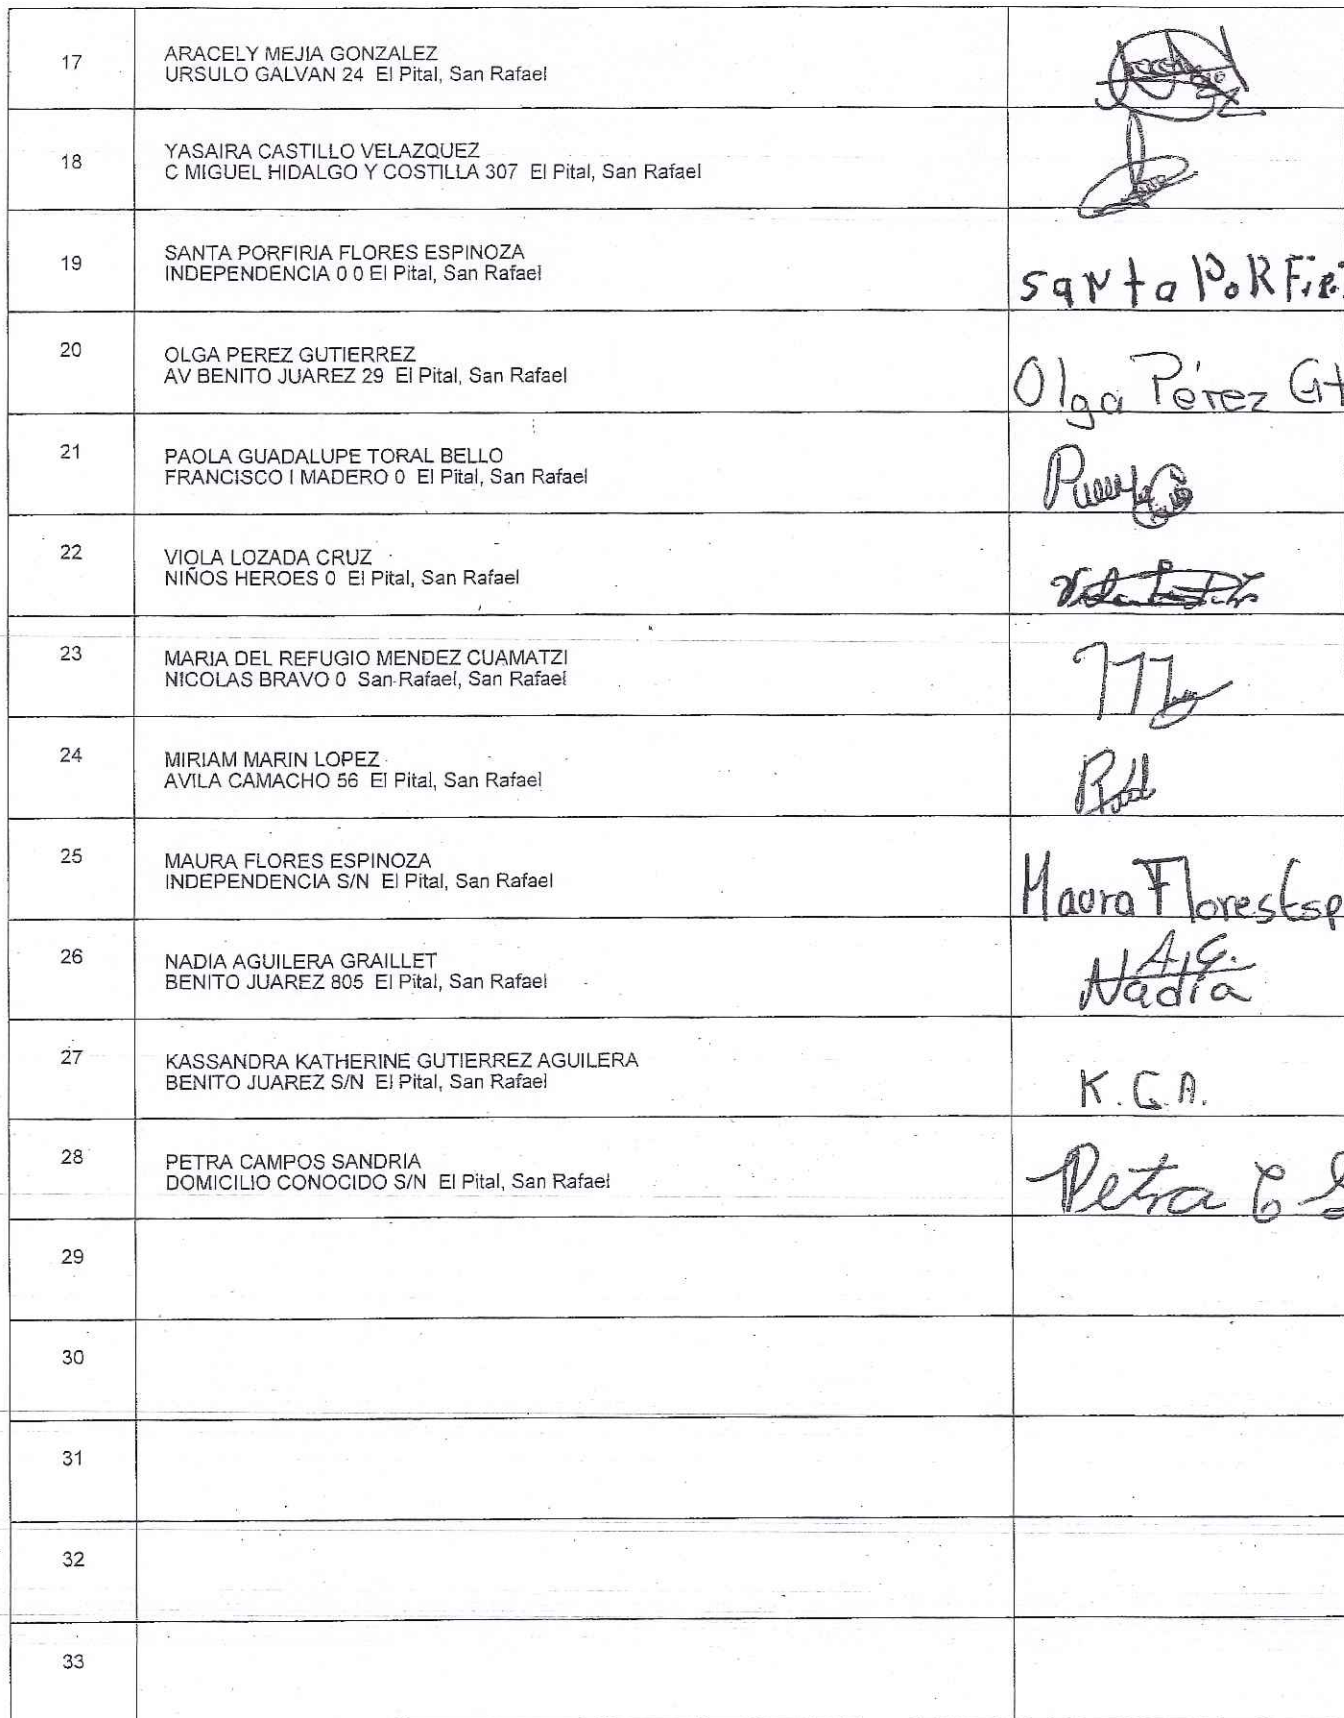 17
ARACELY MEJIA GONZALEZ
URSULO GALVAN 24 El Pital, San Rafael
18
YASAIRA CASTILLO VELAZQUEZ
C MIGUEL HIDALGO Y COSTILLA 307 El Pital, San Rafael
19
SANTA PORFIRIA FLORES ESPINOZA
INDEPENDENCIA 0 0 El Pital, San Rafael
santa PoRFir
20
OLGA PEREZ GUTIERREZ
AV BENITO JUAREZ 29 El Pital, San Rafael
Olga Pérez Gt
21
PAOLA GUADALUPE TORAL BELLO
FRANCISCO I MADERO 0 El Pital, San Rafael
22
VIOLA LOZADA CRUZ
NIÑOS HEROES 0 El Pital, San Rafael
23
MARIA DEL REFUGIO MENDEZ CUAMATZI
NICOLAS BRAVO 0 San Rafael, San Rafael
24
MIRIAM MARIN LOPEZ
AVILA CAMACHO 56 El Pital, San Rafael
25
MAURA FLORES ESPINOZA
INDEPENDENCIA S/N El Pital, San Rafael
Maura Flores Esp
26
NADIA AGUILERA GRAILLET
BENITO JUAREZ 805 El Pital, San Rafael
A.G.
Nadia
27
KASSANDRA KATHERINE GUTIERREZ AGUILERA
BENITO JUAREZ S/N El Pital, San Rafael
K.G.A.
28
PETRA CAMPOS SANDRIA
DOMICILIO CONOCIDO S/N El Pital, San Rafael
Petra C S
29
30
31
32
33